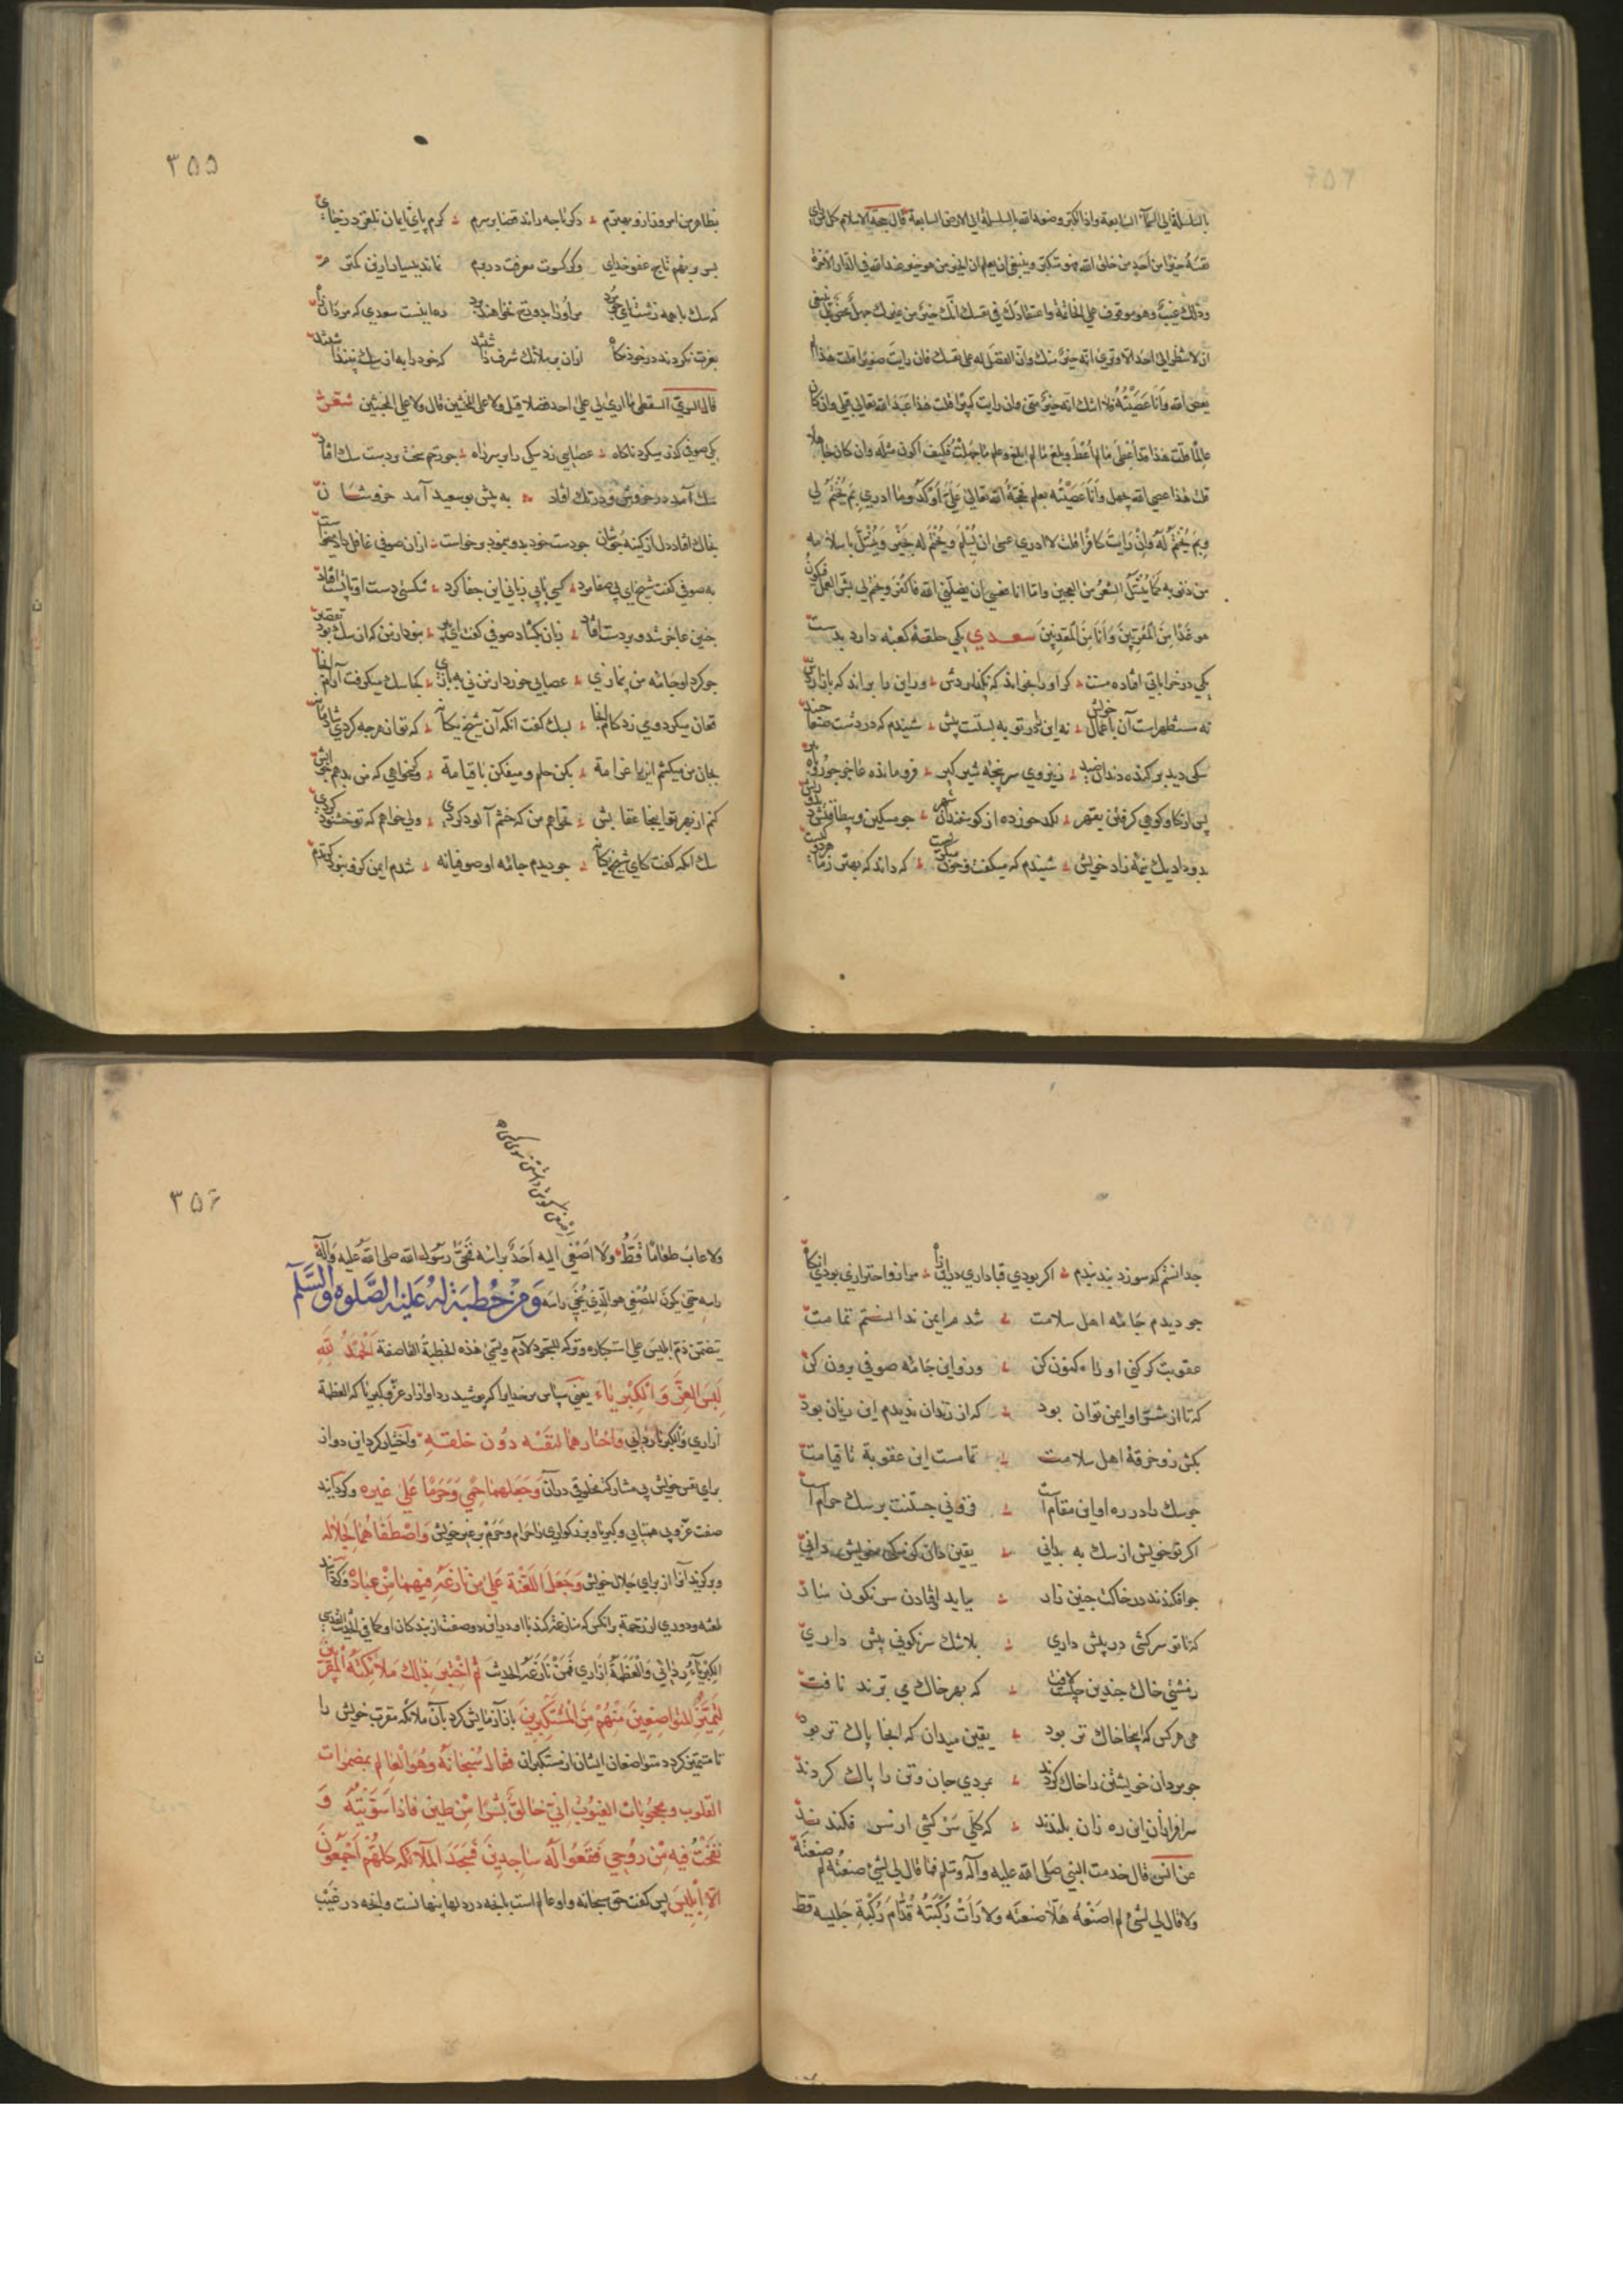 بالسلسلة الي السمآء السابعة واذا تكبر وضعه الله بالسلسلة الي الارض السابعة قال حجة الاسلام كل من راي
نفسه خيرا من احد من خلق الله فهو متكبر وينبغي ان يعلم ان الخير من هو خير عند الله في الدار الآخرة
وذلك غيب وهو موقوف علي الخاتمة واعتقادك في نفسك انك خير من غيرك جهل محض بل ينبغي
ان لا تنظر الي احد الا وتري انه خير منك وان الفضل له علي نفسك فان رايت صغيرا قلت هذا لم
يعص الله وانا عصيته فلا اشك انه خير مني وان رايت كبيرا قلت هذا عبد الله تعالي قبلي وان كان
عالما قلت هذا قد اعطي ما لم اعط وبلغ ما لم ابلغ وعلم ما جهلت فكيف اكون مثله وان كان جاهلا
قلت هذا عصي الله بجهل وانا عصيته بعلم فحجة الله تعالي علي اوكد وما ادري بم يختم لي
وبم يختم له وان رايت كافرا قلت لا ادري عسي ان يسلم ويختم له بخير وينسل باسلامه
من ذنوبه كما ينسل الشعر من العجين واما انا عسي ان يضلني الله فاكفر ويختم لي بشر العمل فيكون
هو غدا من المقربين وانا من المعذبين سعدي يكي حلقة كعبه دارد بدست
يكي در خراباتي افتاده مست كر او را بخواند كه نكذاردش ور اين را براند كه باز آردش
نه مستظهر است آن باعمال خويش نه اين را در توبه بستست پيش شنيدم كه در دشت صنعا جنيد
سكي ديد بر كنده دندان صيد ز نيروي سر پنجه شير كير فرو مانده عاجز چو روباه پير
پس از كاو كوهي كرفتن بقهر لكد خورده از كوسفندان شهر چو مسكين و بيطاقتش ديد و ريش
بدو داد يك نيمه زاد خويش شنيدم كه ميكفت و خون ميكريست كه داند كه بهتر ز ما هر دو كيست
٣٥٥
بظاهر من امروز ازو بهترم دكر تا چه راند قضا بر سرم كرم پاي ايمان نلغزد ز جاي
بسر بر نهم تاج عفو خداي وكر كسوت معرفت در برم نماند ببسيار ازين كمترم
كه سك با همه زشت نامي چو مرد مر او را بدوزخ نخواهند برد ره اينست سعدي كه مردان راه
بعزت نكردند در خود نكاه ازان بر ملائك شرف داشتند كه خود را به از سك نپنداشتند
قال السري السقطي ما اري لي علي احد فضلا قيل ولا علي المخنثين قال ولا علي المخنثين شعر
يكي صوفي كذر ميكرد ناكاه عصايي زد سكي را بر سر راه چو زخم سخت بر دست سك افتاد
سك آمد در خروش و در تك افتاد به پيش بو سعيد آمد خروشان
بخاك افتاد دل از كينه جوشان چو دست خود بدو بنمود و خواست ازان صوفي غافل داد ميخواست
به صوفي كفت شيخ اي بي صفا مرد كسي با بي زباني اين جفا كرد شكستي دست او تا پست افتاد
چنين عاجز شد و بر دست افتاد زبان بكشاد صوفي كفت اي پير نبود از من كه از سك بود تقصير
چو كرد او جامه من نمازي عصايي خورد از من ني به بازي كجا سك ميكرفت آرام اينجا
فغان ميكرد و مي زد كام اينجا بسك كفت انكه آن شيخ يكانه كه تو از هرچه كردي شادمانه
بجان من ميكشم آنرا غرامة بكن حكم و ميفكن با قيامة وكر خواهي كه من بدهم جوابش
كنم از بهر تو اينجا عقابش نخواهم من كه خشم آلود كردي ولي خواهم كه تو خشنود كردي
سك انكه كفت كاي شيخ يكانه چو ديدم جامه او صوفيانه شدم ايمن كزو نبود كزندم
چه دانستم كه سوزد بند بندم اكر بودي قبا داري درين راه مرا زو احترازي بودي آنكاه
چو ديدم جامه اهل سلامت شدم ايمن ندانستم تمامت
عقوبت كر كني او را كنون كن وزو اين جامه صوفي برون كن
كه تا از شر او ايمن توان بود كه از رندان نديدم اين زيان بود
بكش زو خرقة اهل سلامت تمامست اين عقوبة تا قيامت
چو سك را در ره او اين مقام است فزوني جستنت بر سك حرام است
اكر تو خويش از سك به بداني يقين دان كز سكي خويش داني
چو افكندند در خاكت چنين زار ببايد اوفتادن سر نكون سار
كه تا تو سركشي در پيش داري بلا شك سرنكوني پيش داري
ز مشتي خاك چندين چيست لافت كه بهر خاك مي برند نافت
هر هركس كه اينجا خاك تر بود يقين ميدان كه انجا پاك تر بود
چو مردان خويشتن را خاك كردند بمردي جان و تن را پاك كردند
سرافرازان اين ره زان بلندند كه كلي سر كشي از سر فكندند
عن انس قال خدمت النبي صلي الله عليه وآله وسلم فما قال لي لشئ صنعته لم صنعته
ولا قال لي لشئ لم اصنعه هلا صنعته ولا رات ركبته قدام ركبة جليسه قط
٣٥٦
ولا عاب طعاما قط ولا اصغي اليه احد براسه فنحي رسول الله صلي الله عليه وآله
راسه حتي يكون المصغي هو الذي ينحي راسه ومن خطبة له عليه الصلوة والسلم
يتضمن ذم ابليس علي استكباره وتركه السجود لآدم وتسمي هذه الخطبة القاصعة الحمد لله
لبس العز والكبرياء يعني سپاس مر خدايرا كه پوشيد ردا و ازار عز و كبريا كه العظمة
ازاري والكبرياء ردائي واختارهما لنفسه دون خلقه واختيار كرد اين دو از
براي نفس خويش بي مشاركت مخلوقي دران وجعلهما حمي وحرما علي غيره وكردانيد
صفت عز و بي همتايي و كبريا و بزركواري را حرام و حرم بر غير خويش واصطفاهما لجلاله
وبركزيد آنرا از براي جلال خويش وجعل اللعنة علي من نازعه فيهما من عباده وكردانيد
لعنه و دوري از رحمة برانكس كه منازعه كند با او درين دو صفت از بندكان او كما في الحديث القدسي
الكبرياء ردائي والعظمة ازاري فمن نازعه الحديث ثم اختبر بذلك ملائكته المقربين
لتميز المتواضعين منهم من المستكبرين بان آزمايش كرد بآن ملائكه مقرب خويش را
تا متميز كردد متواضعان ايشان از مستكبران فقال سبحانه وهو العالم بمضمرات
القلوب ومحجوبات الغيوب اني خالق بشرا من طين فاذا سويته و
نفخت فيه من روحي فقعوا له ساجدين فسجد الملآئكه كلهم اجمعون
الا ابليس پس كفت حق سبحانه و او عالم است بانچه در دلها پنهانست و بانچه در غيب